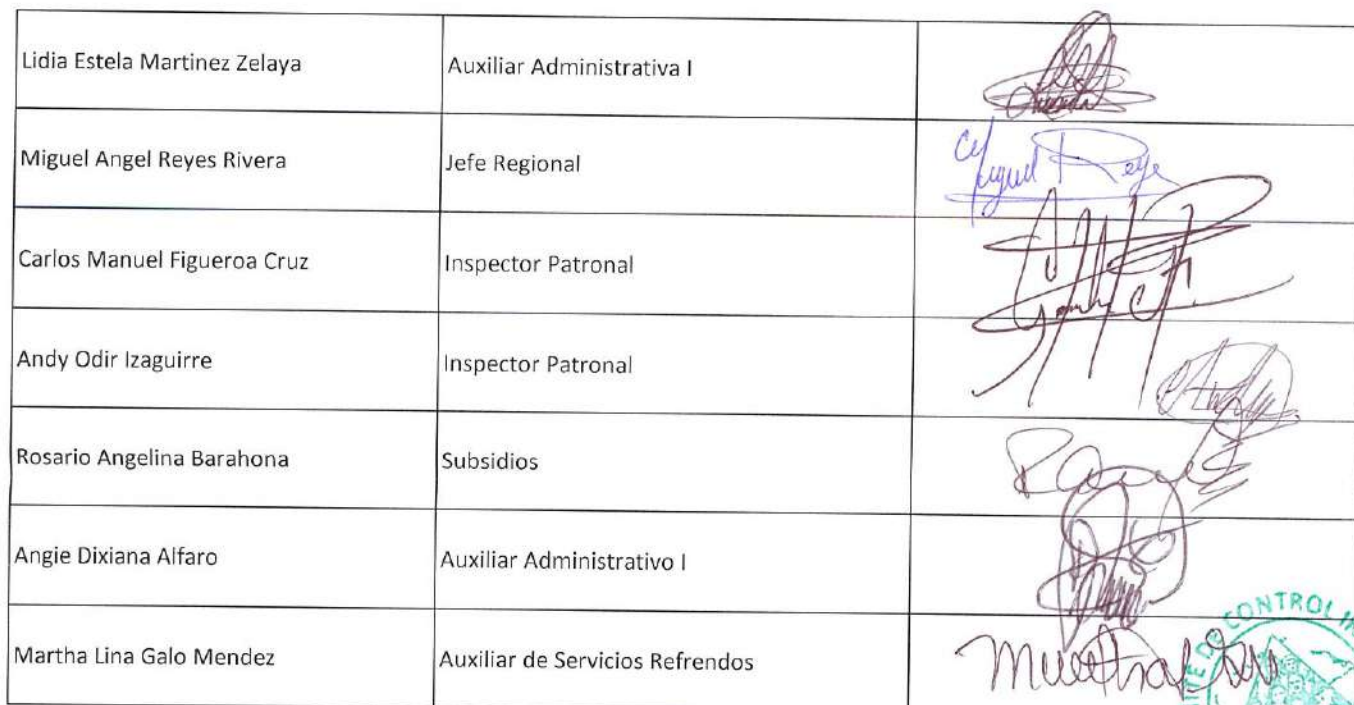 Lidia Estela Martinez Zelaya Auxiliar Administrativa I
Miguel Angel Reyes Rivera Jefe Regional
Miguel Reyes
Carlos Manuel Figueroa Cruz Inspector Patronal
Andy Odir Izaguirre Inspector Patronal
Rosario Angelina Barahona Subsidios
Angie Dixiana Alfaro Auxiliar Administrativo I
Martha Lina Galo Mendez Auxiliar de Servicios Refrendos
DE CONTROL